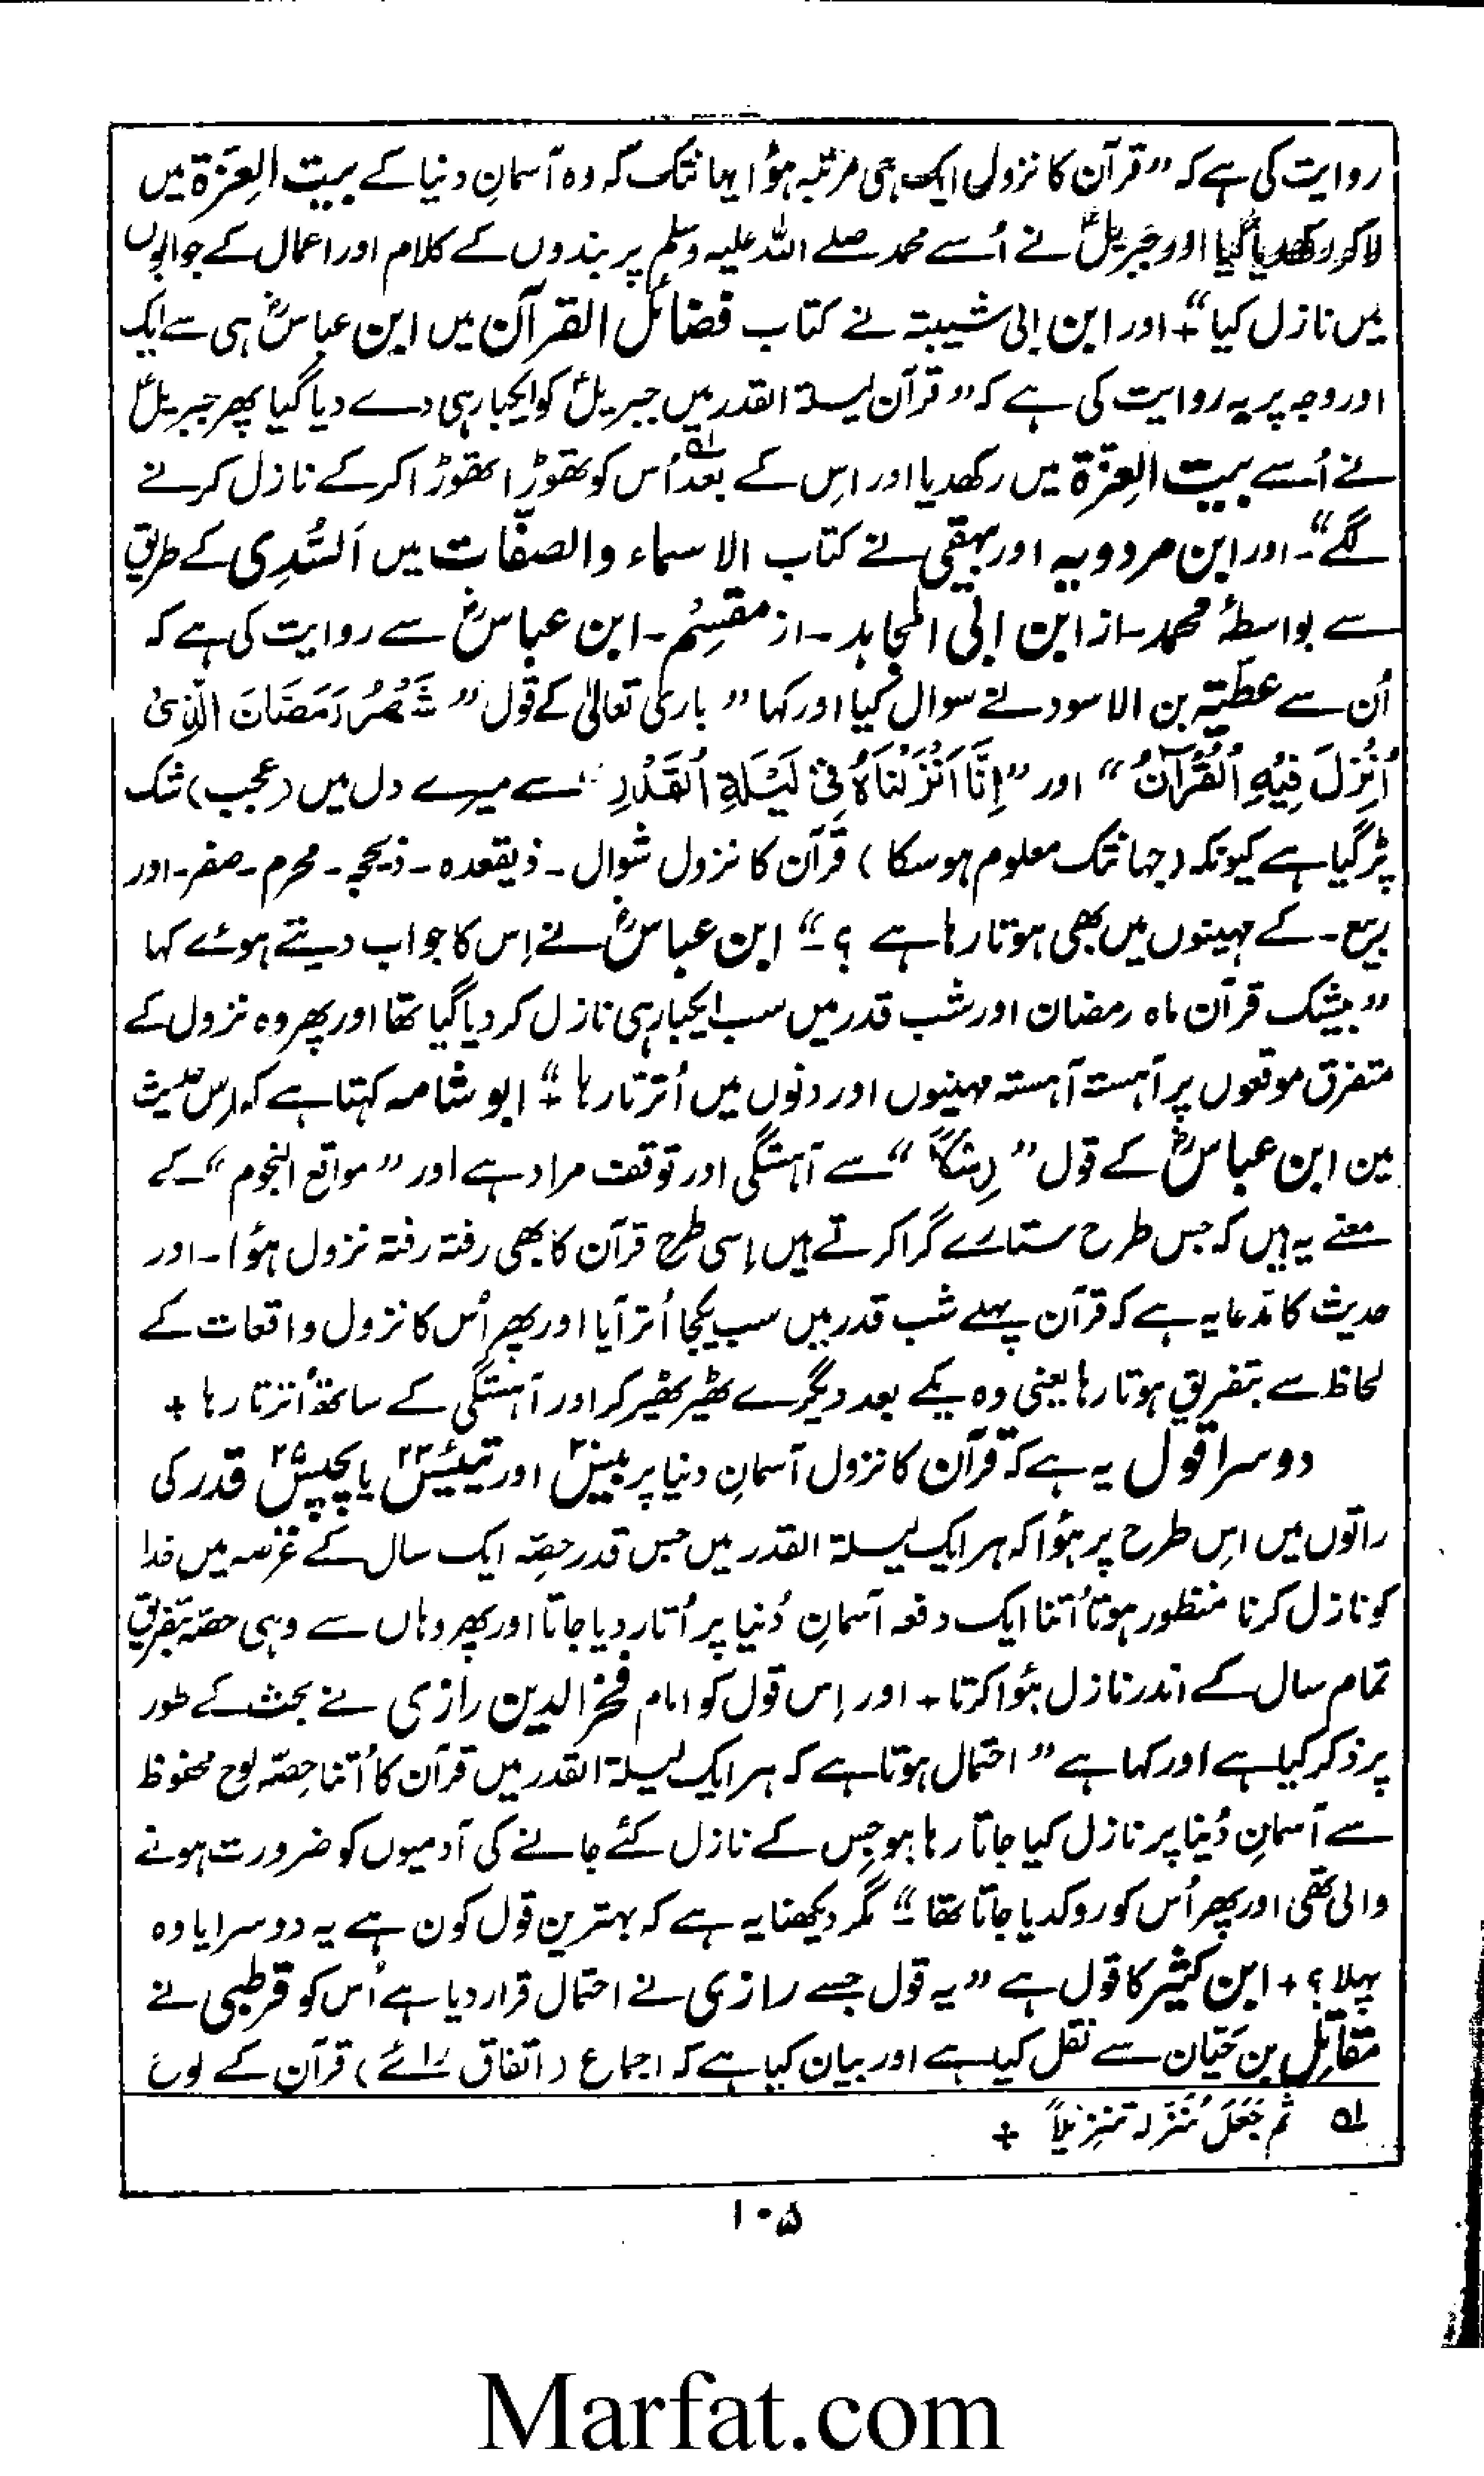 روایت کی ہے کہ ”قرآن کا نزول ایک ہی مرتبہ ہؤا یہانتک کہ وہ آسمانِ دنیا کے بیت العِزّۃ میں
لاکر رکھدیا گیا اور جبریلؑ نے اُسے محمد صلے اللہ علیہ وسلم پر بندوں کے کلام اور اعمال کے جوابوں
میں نازل کیا“+ اور ابن ابی شیبتہ نے کتاب فضائل القرآن میں ابن عباسؓ ہی سے ایک
اور وجہ پر یہ روایت کی ہے کہ ”قرآن لیلۃ القدر میں جبریلؑ کو ایکبارہی دے دیا گیا پھر جبریلؑ
نے اُسے بیت العِزّۃ میں رکھدیا اور اِس کے بعد۱؎ اُس کو تھوڑا تھوڑا کرکے نازل کرنے
لگے“۔ اور ابن مردویہ اور بیہقی نے کتاب الاسماء والصفّات میں اَلسُّدِی کے طریق
سے بواسطۂ محمد۔ از ابن ابی المجاہد۔ از مقسِم۔ ابن عباسؓ سے روایت کی ہے کہ
اُن سے عطیّہ بن الاسود نے سوال کیا اور کہا ”باری تعالیٰ کے قول ”شَهْرُ رَمَضَانَ الَّذِیْ
اُنْزِلَ فِیْهِ الْقُرْآنُ“ اور ”اِنَّا اَنْزَلْنَاهُ فِیْ لَیْلَةِ الْقَدْرِ“ سے میرے دل میں (عجب) شک
پڑگیا ہے کیونکہ (جہانتک معلوم ہوسکا) قرآن کا نزول شوال۔ ذیقعدہ۔ ذیحجہ۔ محرم۔ صفر۔ اور
ربیع۔ کے مہینوں میں بھی ہوتا رہا ہے ؟“ ابن عباسؓ نے اِس کا جواب دیتے ہوئے کہا
”بیشک قرآن ماہ رمضان اور شب قدر میں سب ایکبارہی نازل کردیا گیا تھا اور پھر وہ نزول کے
متفرق موقعوں پر آہستہ آہستہ مہینوں اور دنوں میں اُترتا رہا“+ ابو شامہ کہتا ہے کہ اِس حدیث
میں ابن عباسؓ کے قول ”رِسْلاً“ سے آہستگی اور توقف مراد ہے اور ”مواقع النجوم“ کے
معنے یہ ہیں کہ جس طرح ستارے گرا کرتے ہیں اِسی طرح قرآن کا بھی رفتہ رفتہ نزول ہؤا۔ اور
حدیث کا مدّعا یہ ہے کہ قرآن پہلے شب قدر میں سب یکجا اُتر آیا اور پھر اُس کا نزول واقعات کے
لحاظ سے بتفریق ہوتا رہا یعنی وہ یکے بعد دیگرے ٹھیر ٹھیر کر اور آہستگی کے ساتھ اُترتا رہا +
دوسرا قول یہ ہے کہ قرآن کا نزول آسمانِ دنیا پر بیس۲۰ اور تیئیس۲۳ یا پچیس۲۵ قدر کی
راتوں میں اِس طرح پر ہؤا کہ ہر ایک لیلۃ القدر میں جس قدر حِصّہ ایک سال کے عرصہ میں خدا
کو نازل کرنا منظور ہوتا اُتنا ایک دفعہ آسمانِ دُنیا پر اُتار دیا جاتا اور پھر وہاں سے وہی حصّہ بتفریق
تمام سال کے اندر نازل ہؤا کرتا + اور اِس قول کو امام فخر الدین رازی نے بحث کے طور
پر ذکر کیا ہے اور کہا ہے ”احتمال ہوتا ہے کہ ہر ایک لیلۃ القدر میں قرآن کا اُتنا حِصّہ لوح محفوظ
سے آسمانِ دُنیا پر نازل کیا جاتا رہا ہو جِس کے نازل کئے جانے کی آدمیوں کو ضرورت ہونے
والی تھی اور پھر اُس کو روکدیا جاتا تھا“ مگر دیکھنا یہ ہے کہ بہترین قول کون ہے یہ دوسرا یا وہ
پہلا؟ + ابن کثیر کا قول ہے ”یہ قول جسے رازی نے احتمال قرار دیا ہے اُس کو قرطبی نے
مقاتِل بن حَیّان سے نقل کیا ہے اور بیان کیا ہے کہ اجماع (اتفاق رائے) قرآن کے لوح
۱؎ ثم جَعَلَ یُنَزِّلہ تنزیلاً +
۱۰۵
Marfat.com